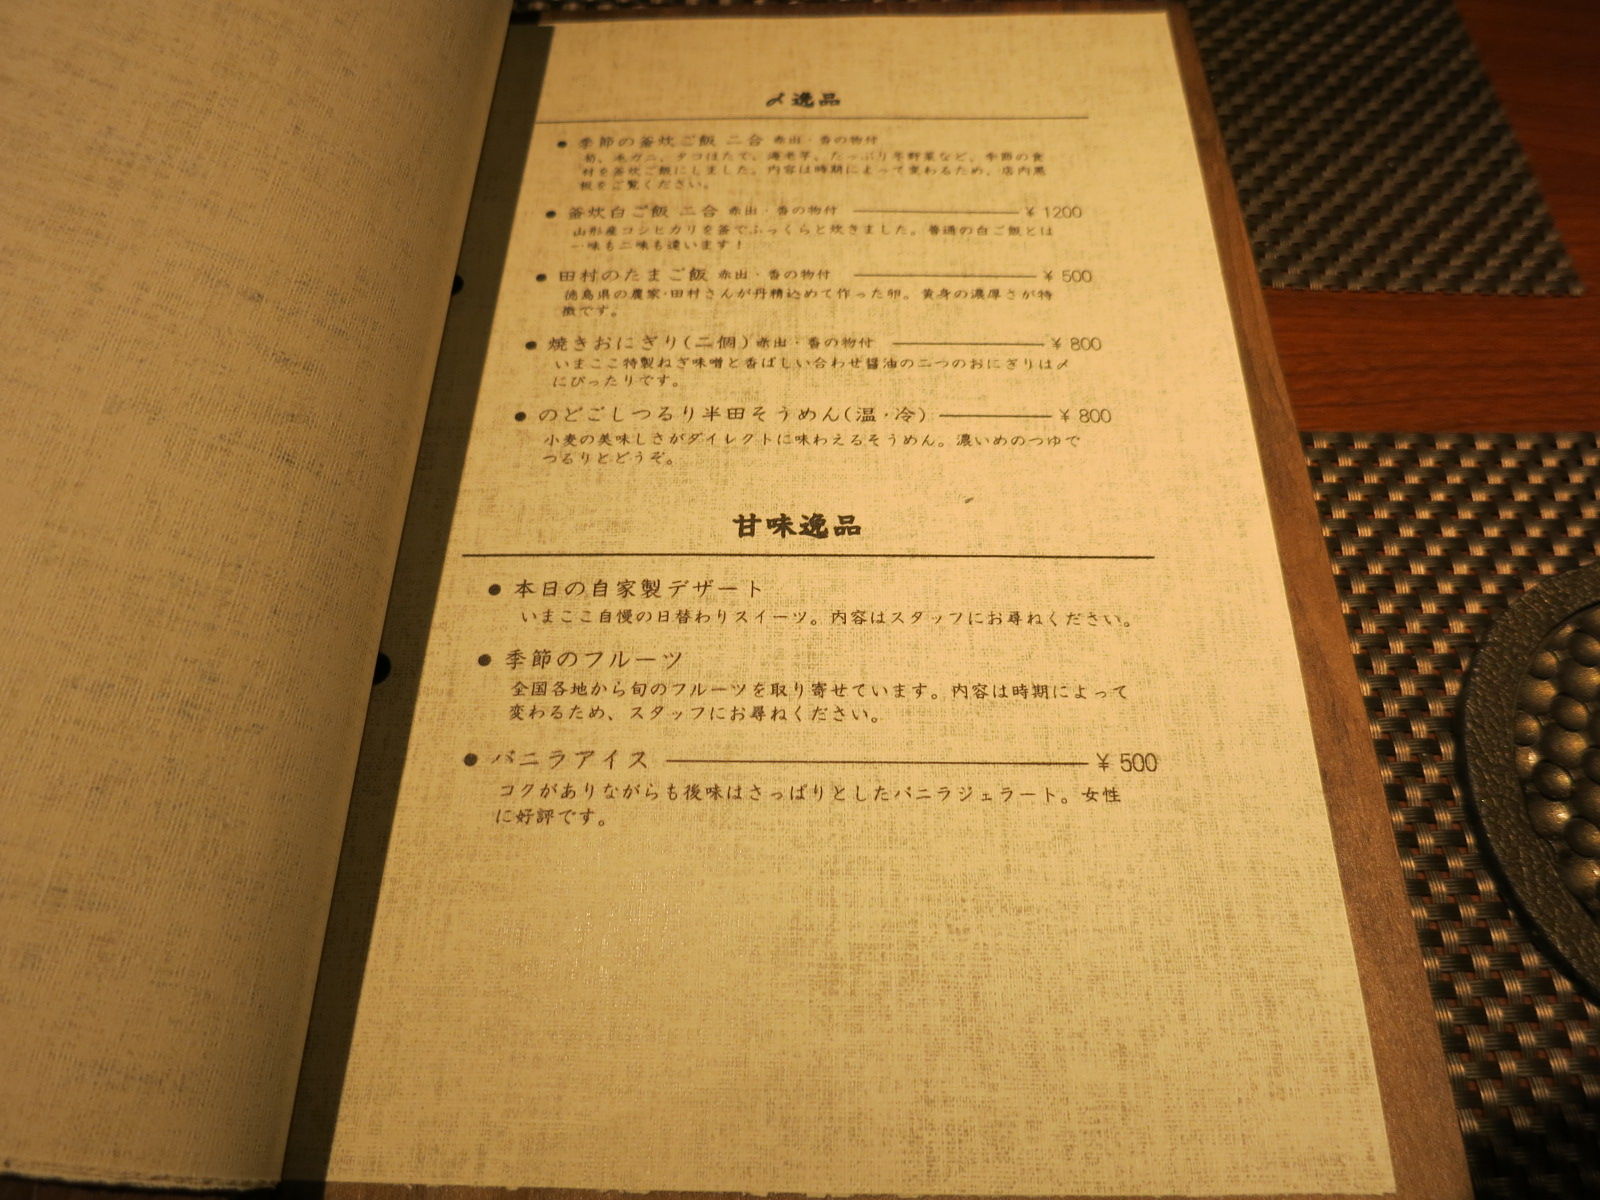 〆逸品
●季節の釜炊ご飯 二合 赤出・香の物付
筍、毛ガニ、タコほたて、海老芋、たっぷり冬野菜など、季節の食
材を釜炊ご飯にしました。内容は時期によって変わるため、店内黒
板をご覧ください。
●釜炊白ご飯 二合 赤出・香の物付 ¥1200
山形産コシヒカリを釜でふっくらと炊きました。普通の白ご飯とは
一味も二味も違います！
●田村のたまご飯 赤出・香の物付 ¥500
徳島県の農家・田村さんが丹精込めて作った卵。黄身の濃厚さが特
徴です。
●焼きおにぎり(二個)赤出・香の物付 ¥800
いまここ特製ねぎ味噌と香ばしい合わせ醤油の二つのおにぎりは〆
にぴったりです。
●のどごしつるり半田そうめん(温・冷) ¥800
小麦の美味しさがダイレクトに味わえるそうめん。濃いめのつゆで
つるりとどうぞ。
甘味逸品
●本日の自家製デザート
いまここ自慢の日替わりスイーツ。内容はスタッフにお尋ねください。
●季節のフルーツ
全国各地から旬のフルーツを取り寄せています。内容は時期によって
変わるため、スタッフにお尋ねください。
●バニラアイス ¥500
コクがありながらも後味はさっぱりとしたバニラジェラート。女性
に好評です。